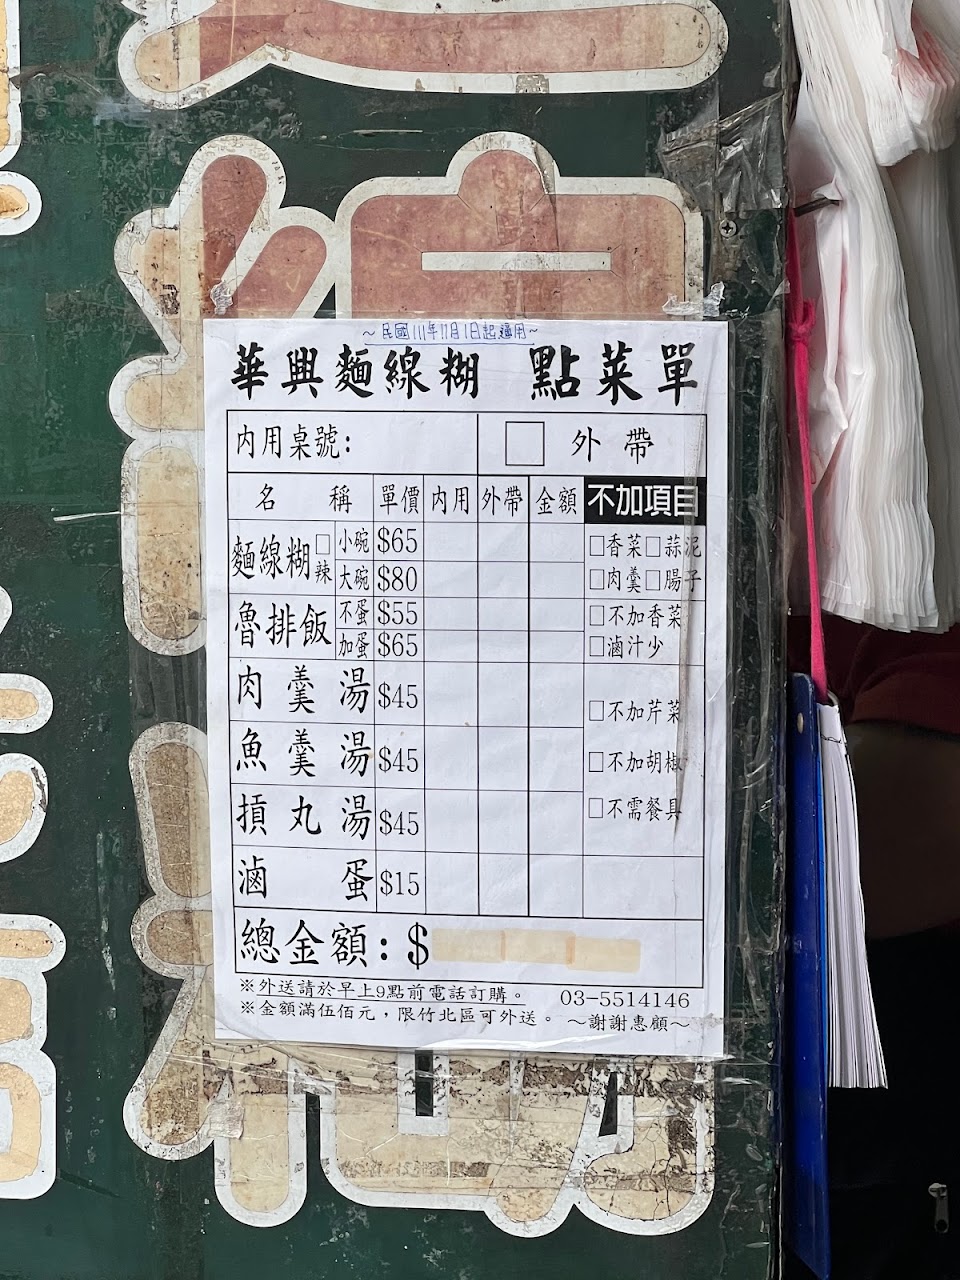 ~民國111年11月1日起適用~
華興麵線糊 點菜單
內用桌號: □ 外帶
名稱 單價 內用 外帶 金額 不加項目
麵線糊 □辣 小碗 $65 □香菜□蒜泥
大碗 $80 □肉羹□腸子
魯排飯 不蛋 $55 □不加香菜
加蛋 $65 □滷汁少
肉羹湯 $45 □不加芹菜
魚羹湯 $45 □不加胡椒
摃丸湯 $45 □不需餐具
滷蛋 $15
總金額:$
※外送請於早上9點前電話訂購。 03-5514146
※金額滿伍佰元，限竹北區可外送。 ～謝謝惠顧～